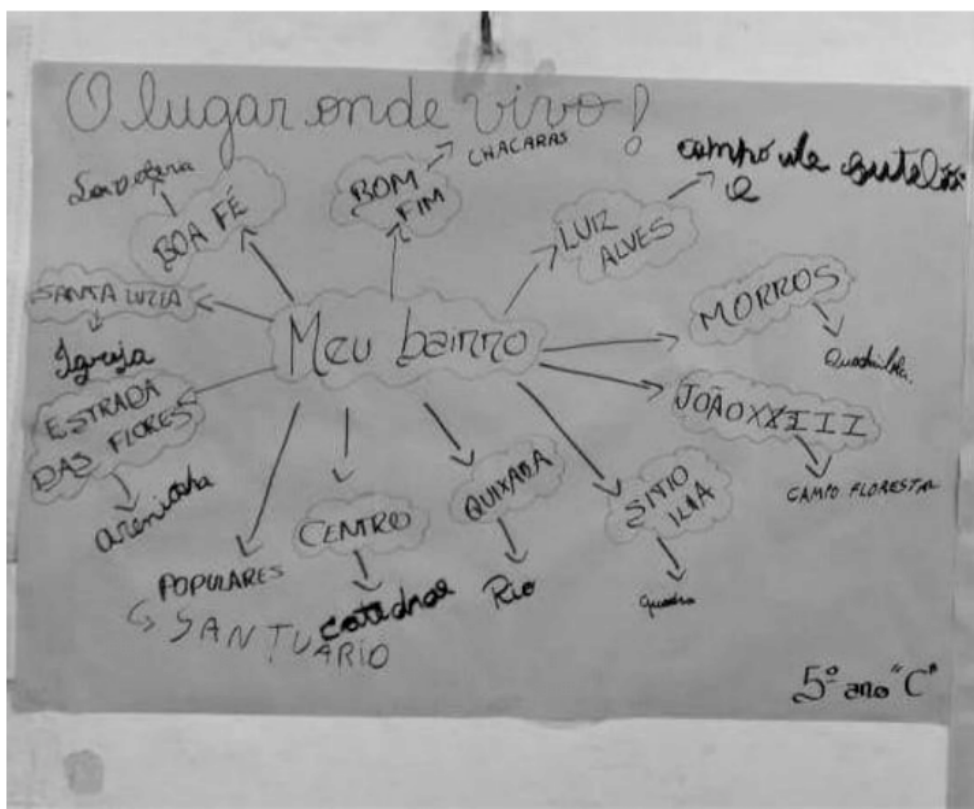 O lugar onde vivo!
BOA FÉ
BOM
FIM
CHACARAS
LUIZ
ALVES
campo de
e
SANTA LUZIA
Igreja
Meu bairro
MORROS
ESTRADA
DAS FLORES
areninha
JOÃO XXIII
CAMPO FLORESTAL
POPULARES
SANTUÁRIO
CENTRO
catedral
QUIXABA
Rio
SITIO
ILHA
quadra
5º ano "C"